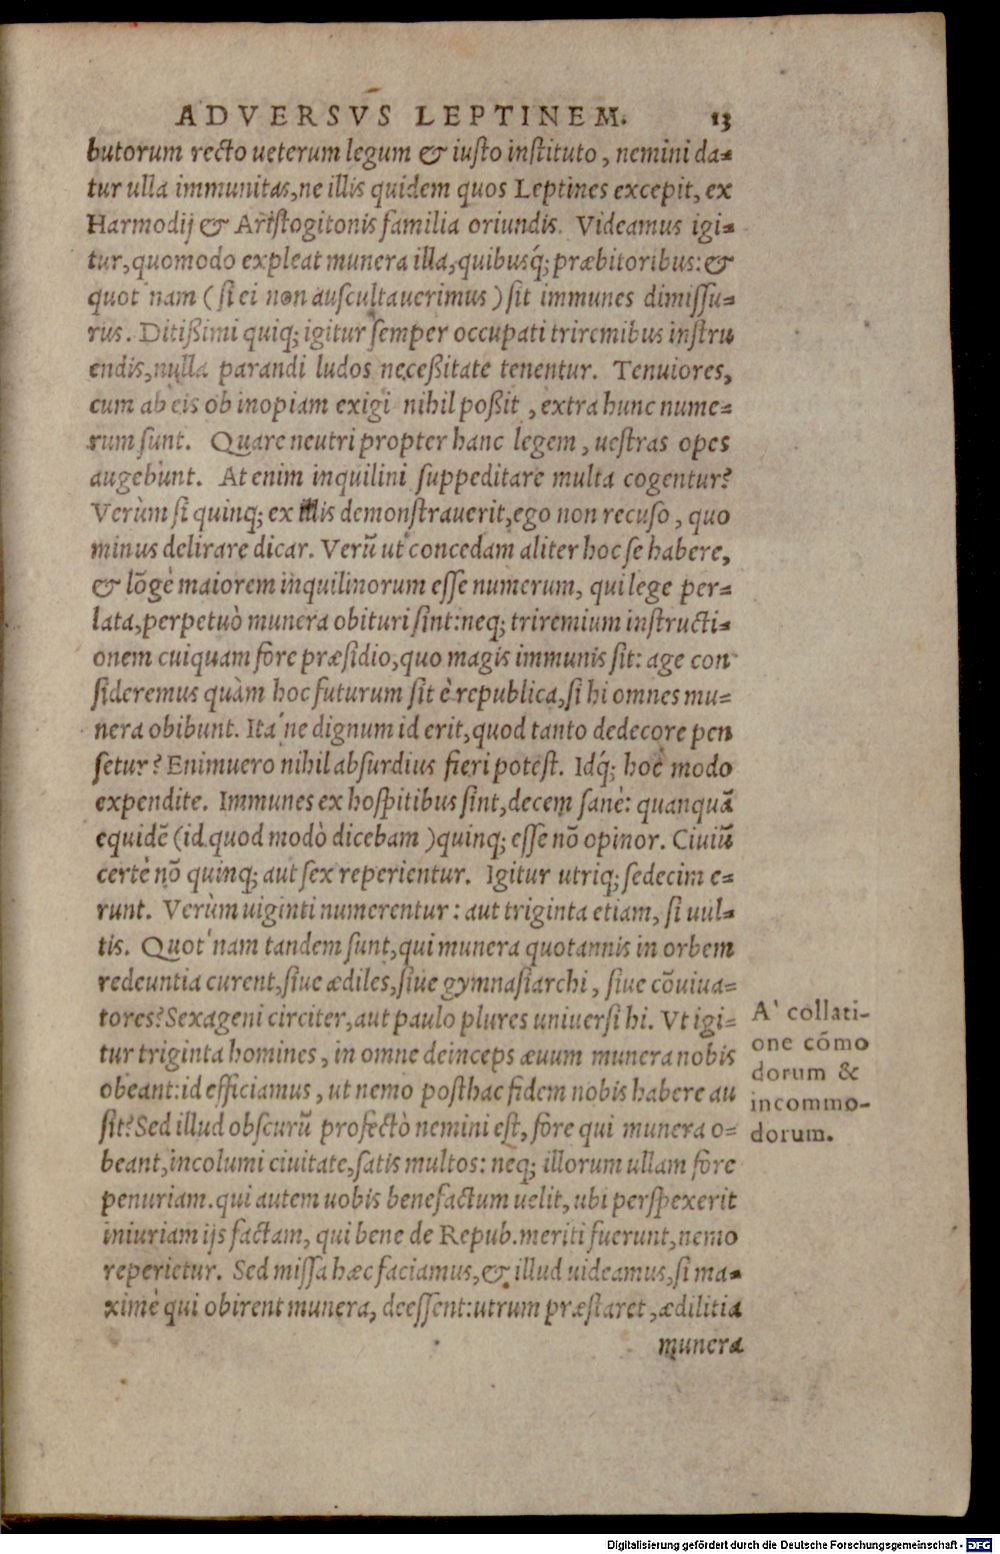 ADVERSVS LEPTINEM. 13
butorum recto ueterum legum & iusto instituto, nemini da-
tur ulla immunitas, ne illis quidem quos Leptines excepit, ex
Harmodij & Aristogitonis familia oriundis. Videamus igi-
tur, quomodo expleat munera illa, quibusq́; præbitoribus: &
quot nam (si ei non auscultauerimus) sit immunes dimissu-
rus. Ditißimi quiq; igitur semper occupati triremibus instru
endis, nulla parandi ludos neceßitate tenentur. Tenuiores,
cum ab eis ob inopiam exigi nihil poßit, extra hunc nume-
rum sunt. Quare neutri propter hanc legem, uestras opes
augebunt. At enim inquilini suppeditare multa cogentur?
Verùm si quinq; ex illis demonstrauerit, ego non recuso, quo
minus delirare dicar. Verũ ut concedam aliter hoc se habere,
& lõgè maiorem inquilinorum esse numerum, qui lege per-
lata, perpetuò munera obituri sint: neq; triremium instructi-
onem cuiquam fore præsidio, quo magis immunis sit: age con
sideremus quàm hoc futurum sit è republica, si hi omnes mu-
nera obibunt. Ita ne dignum id erit, quod tanto dedecore pen
setur? Enimuero nihil absurdius fieri potest. Idq́; hoc modo
expendite. Immunes ex hospitibus sint, decem sanè: quanquã
equidẽ (id quod modò dicebam) quinq; esse nõ opinor. Ciuiũ
certè nõ quinq; aut sex reperientur. Igitur utriq; sedecim e-
runt. Verùm uiginti numerentur: aut triginta etiam, si uul-
tis. Quot nam tandem sunt, qui munera quotannis in orbem
redeuntia curent, siue ædiles, siue gymnasiarchi, siue cõuiua-
tores? Sexageni circiter, aut paulo plures uniuersi hi. Vt igi-
tur triginta homines, in omne deinceps æuum munera nobis
obeant: id efficiamus, ut nemo posthac fidem nobis habere au
sit? Sed illud obscurũ profectò nemini est, fore qui munera o-
beant, incolumi ciuitate, satis multos: neq; illorum ullam fore
penuriam. qui autem uobis benefactum uelit, ubi perspexerit
iniuriam ijs factam, qui bene de Repub. meriti fuerunt, nemo
reperietur. Sed missa hæc faciamus, & illud uideamus, si ma-
ximè qui obirent munera, deessent: utrum præstaret, ædilitia
munera
A' collati-
one cõmo
dorum &
incommo-
dorum.
Digitalisierung gefördert durch die Deutsche Forschungsgemeinschaft - DFG